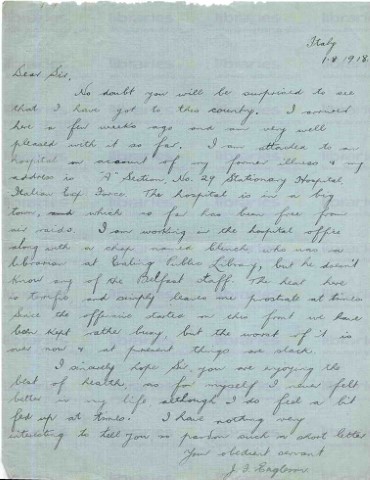 Italy
1·8·1918.
Dear Sir,
No doubt you will be surprised to see
that I have got to this country. I arrived
here a few weeks ago and am very well
pleased with it so far. I am attached to a
hospital on account of my former illness & my
address is "A" Section, No. 29 Stationary Hospital
Italian Exp Force. The hospital is in a big
town, and which so far has been free from
air raids. I am working in the hospital office
along with a chap named Church who was a
librarian at Ealing Public Library, but he doesn't
know any of the Belfast staff. The heat here
is terrific and simply leaves me prostrate at times
Since the offensive started on this front we have
been kept rather busy, but the worst of it is
over now & at present things are slack.
I sincerely hope Sir, you are enjoying the
best of health, as for myself I never felt
better in my life although I do feel a bit
fed up at times. I have nothing very
interesting to tell you so pardon such a short letter
Your obedient servant
J. F.